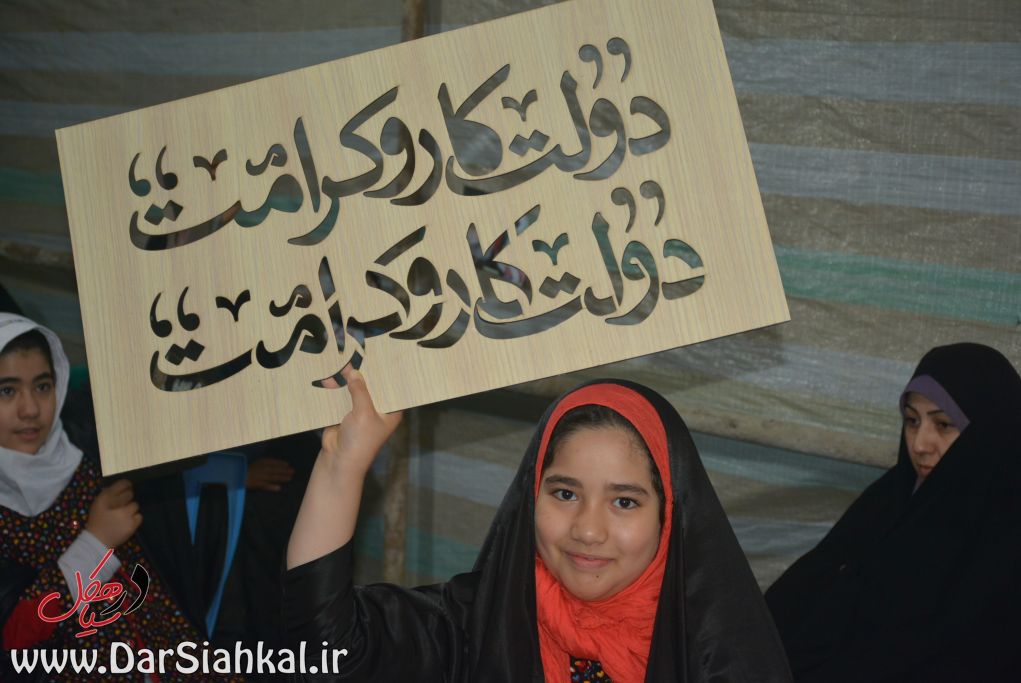 ”دولت کار و کرامت“
”دولت کار و کرامت“
در سیاهکل
www.DarSiahkal.ir